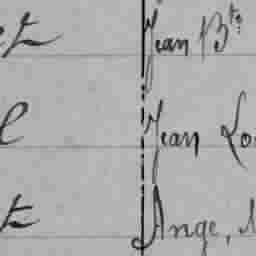 et Jean Bte
l Jean Lo
t Ange,